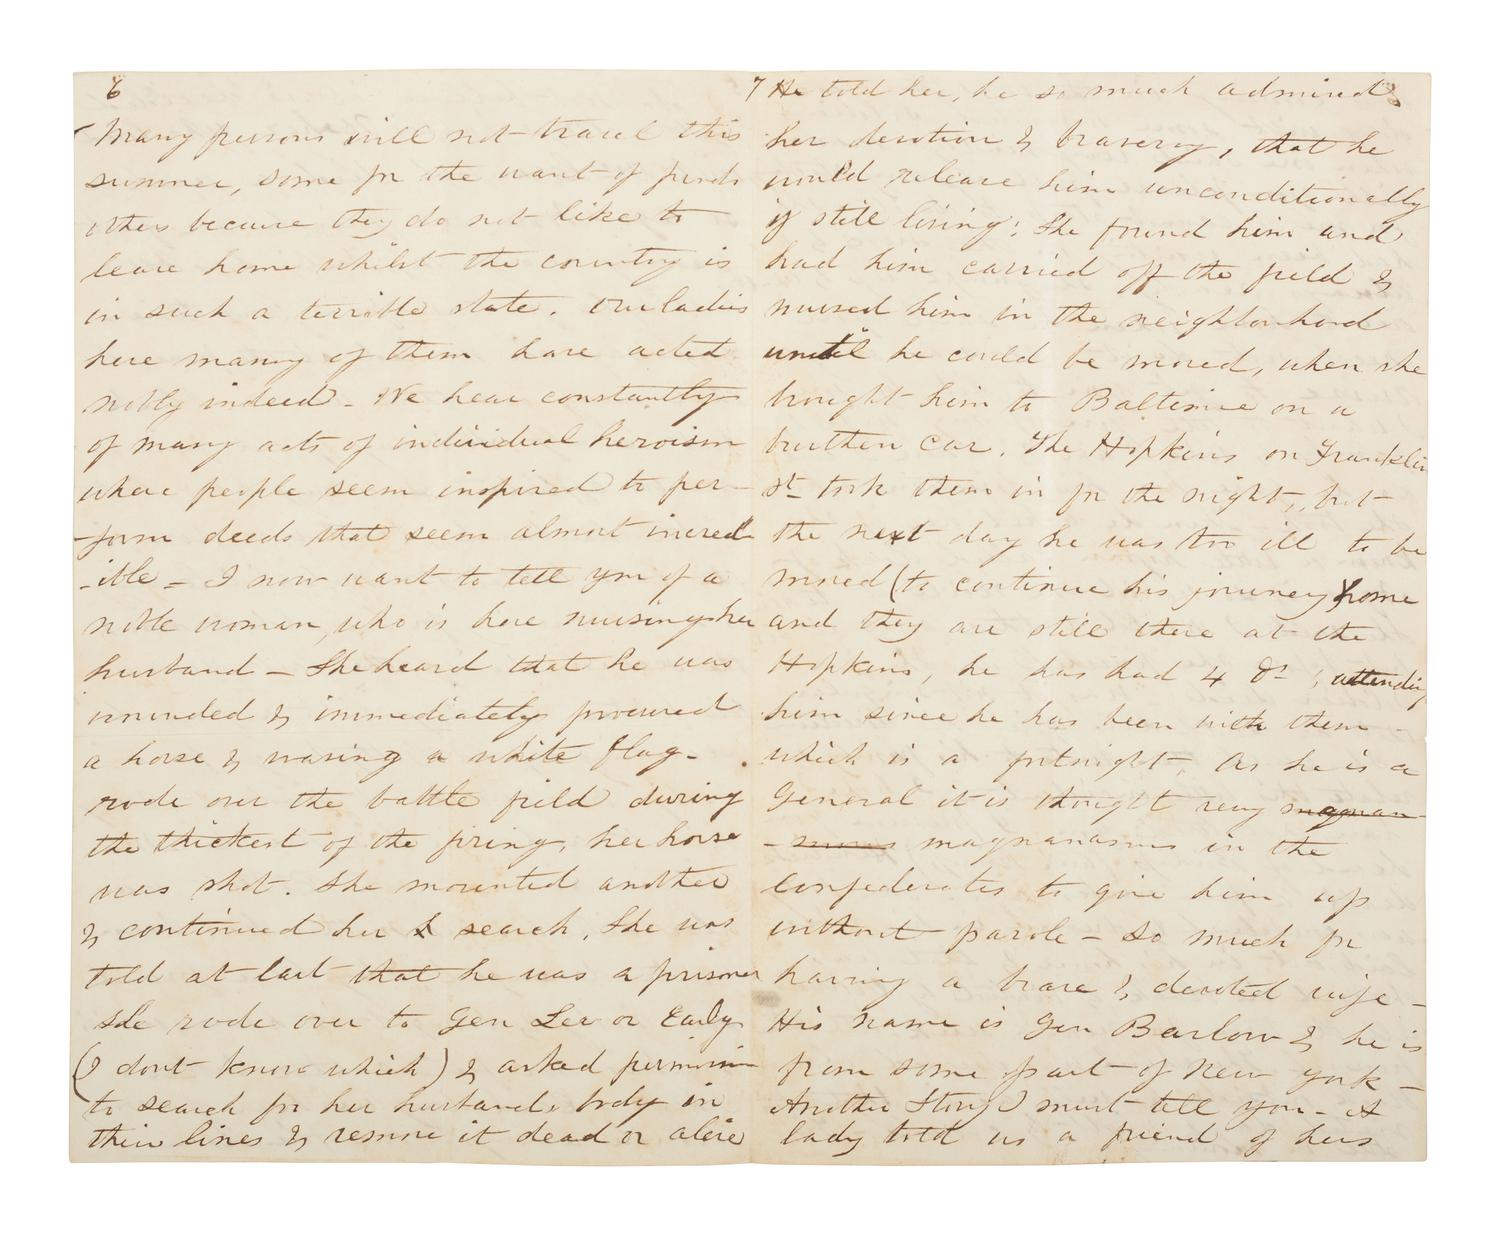 6
Many persons will not travel this
summer, some for the want of funds
others because they do not like to
leave home whilst the country is
in such a terrible state. Our ladies
here many of them have acted
nobly indeed - We hear constantly
of many acts of individual heroism
where people seem inspired to per-
-form deeds that seem almost incred
-ible - I now want to tell you of a
noble woman, who is here nursing her
husband - She heard that he was
wounded & immediately procured
a horse & waving a white flag -
rode over the battle field during
the thickest of the firing, her horse
was shot. She mounted another
& continued her search. She was
told at last that he was a prisoner
She rode over to Gen Lee or Early
(I dont know which) & asked permission
to search for her husbands body in
their lines & remove it dead or alive
7 He told her, he so much admired
her devotion & bravery, that he
would release him unconditionally
if still living; She found him and
had him carried off the field &
nursed him in the neighborhood
until he could be moved, when she
brought him to Baltimore on a
burthen car. The Hopkins on Franklin
St took them in for the night, but
the next day he was too ill to be
moved (to continue his journey) home
and they are still there at the
Hopkins, he has had 4 Drs attending
him since he has been with them
which is a fortnight. As he is a
General it is thought very magnan-
-imous magnanamus in the
Confederates to give him up
without parole - So much for
having a brave & devoted wife -
His name is Gen Barlow & he is
from some part of New York -
Another Story I must tell you - A
lady told us a friend of hers